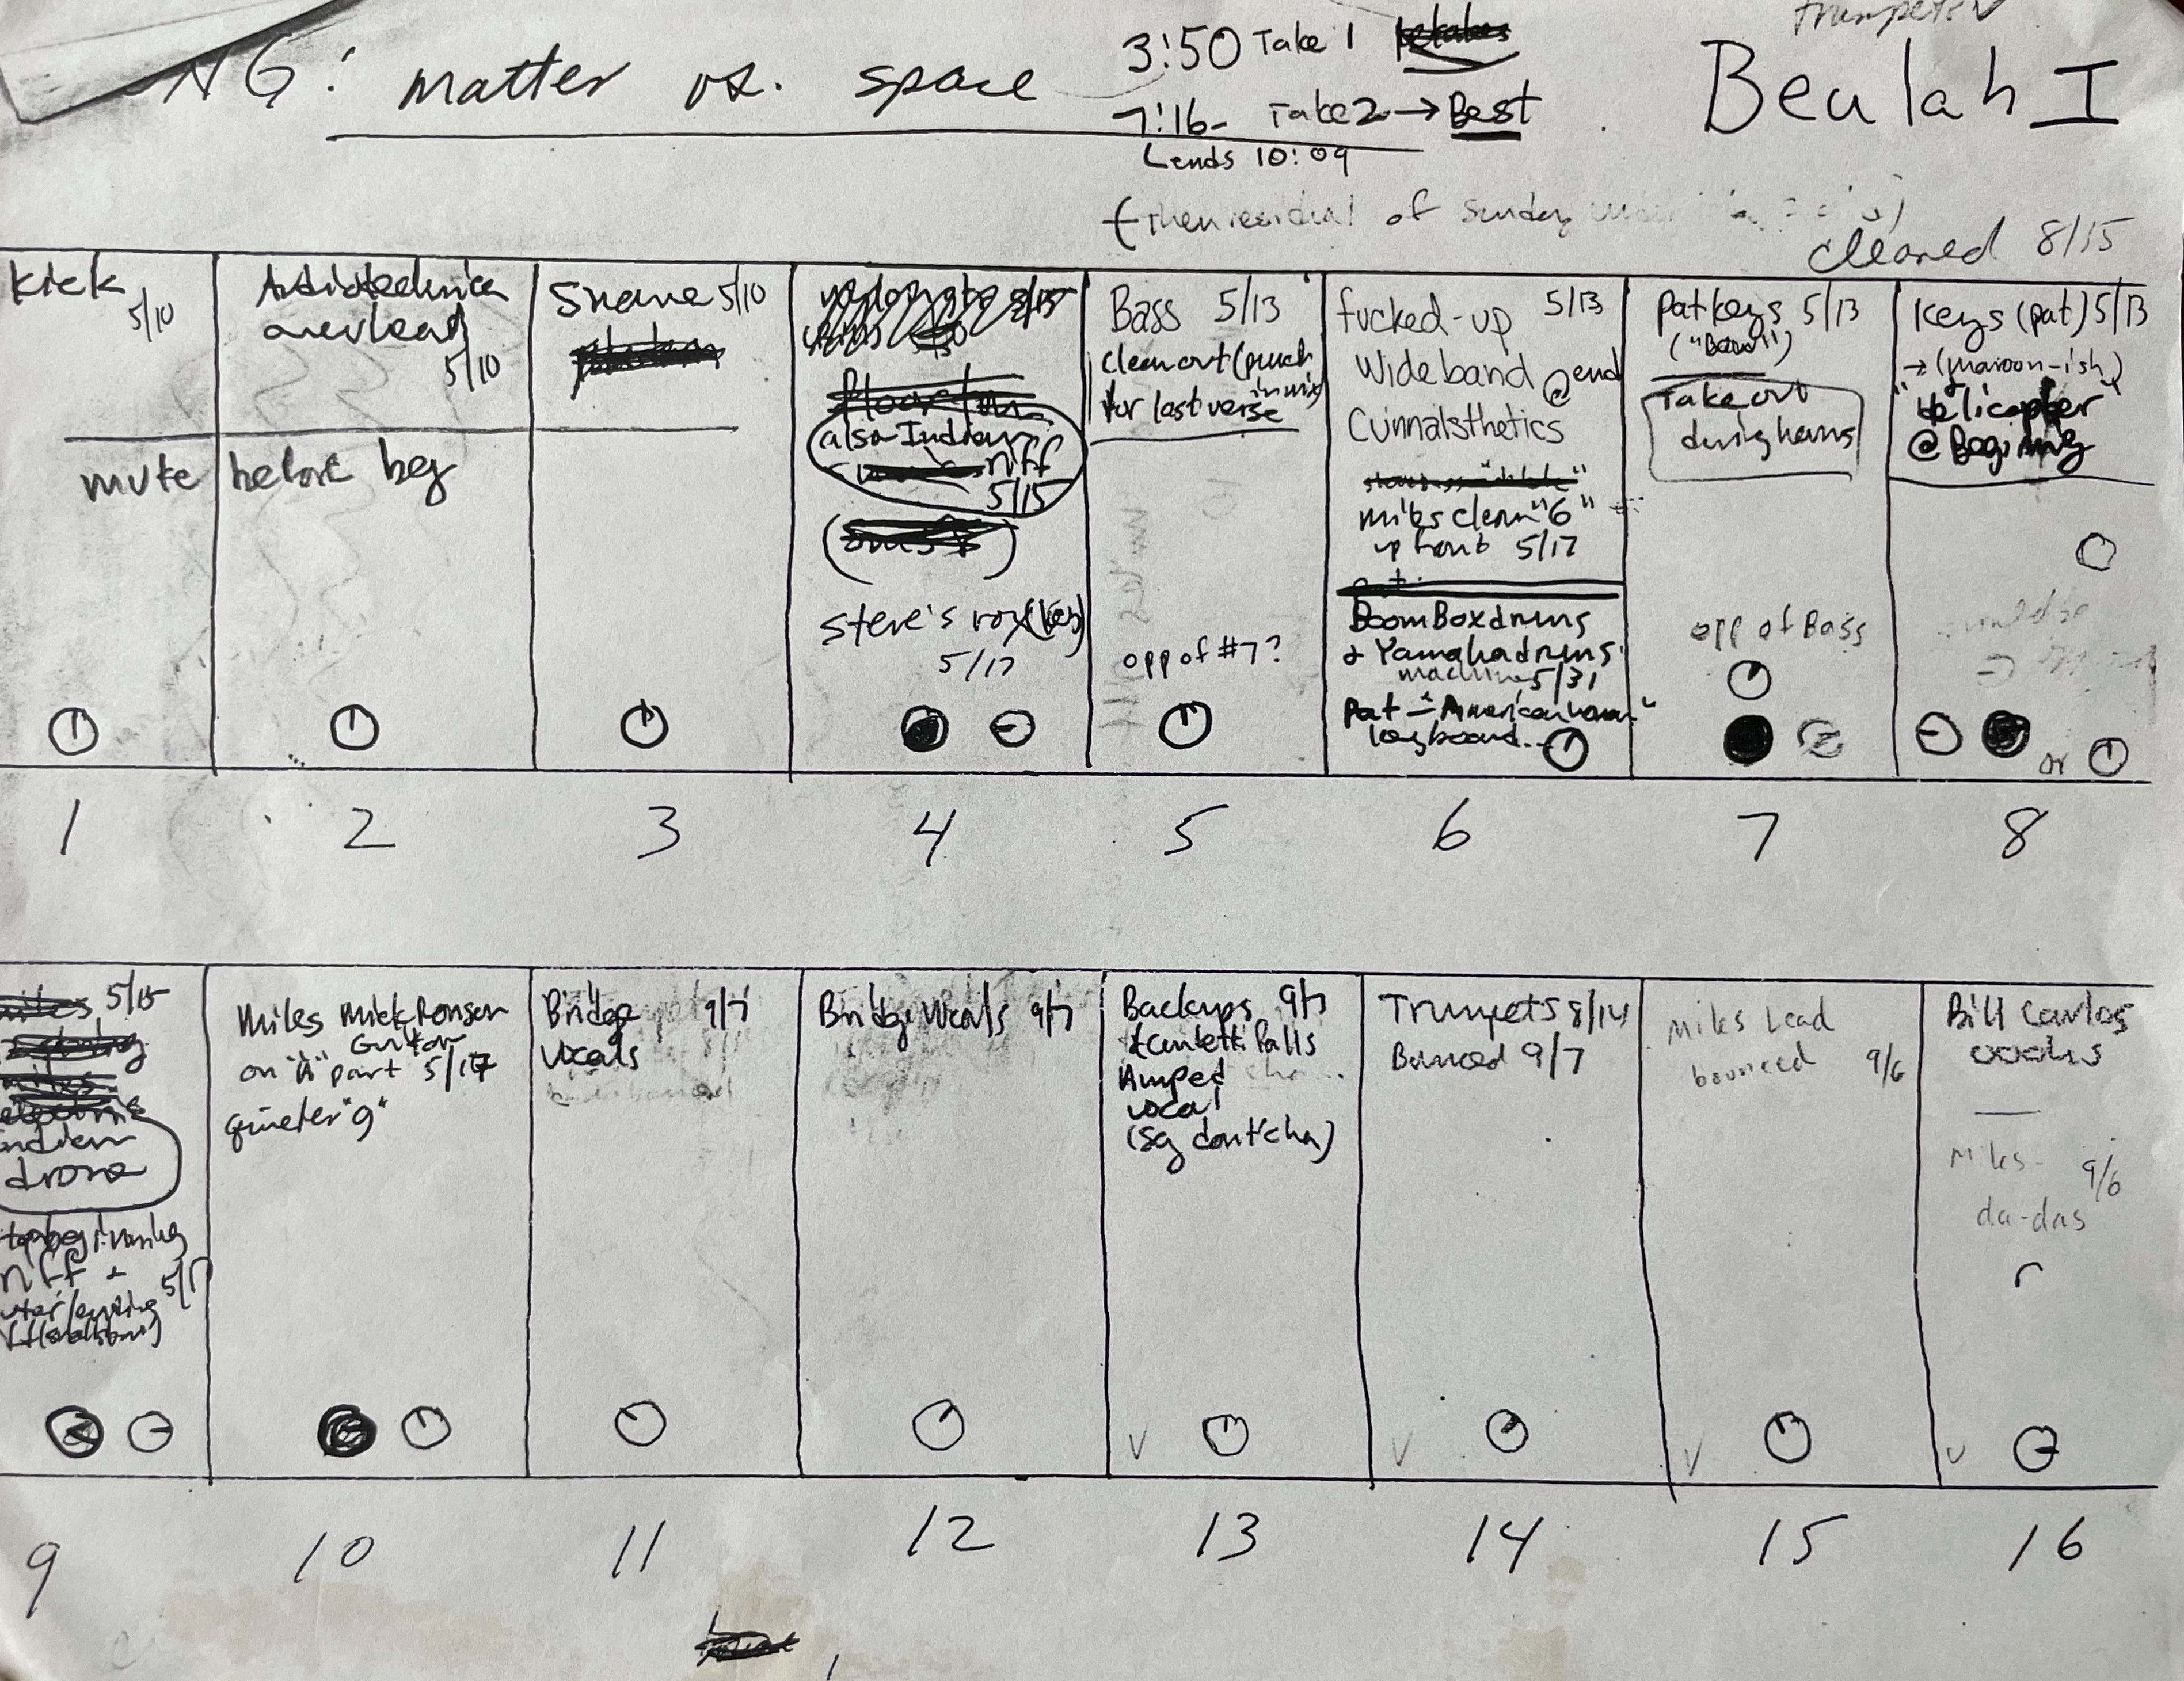 trumpets
NG: matter vs. space
3:50 Take 1
7:16- Take 2 → Best
ends 10:09
Beulah I
(then residual of Sunday
cleared 8/15
Kick
5/10
mute before beg
Audiotechnica
overhead
5/10
Snare 5/10
also Indian
riff
5/15
steve's
5/17
Bass 5/13
clean out (punch
in mix)
for last verse
opp of #7?
fucked-up 5/13
Wideband @ end
miles clean "6"
up front 5/17
BoomBox drums
& Yamaha drums
machine 5/31
pat - "American woman"
keyboard..
pat keys 5/13
Take out
during horns
opp of Bass
Keys (pat) 5/13
→ (maroon-ish)
"Helicopter"
@ Begining
or
1 2 3 4 5 6 7 8
5/15
indian
drone
riff +
5/17
Miles Mick Ronson
Guitar
on "A" part 5/17
quieter "9"
Bridge 9/7
Vocals
Bridge Vocals 9/7
Backups 9/7
Amped
vocal
(sg dont'cha)
Trumpets 8/14
Bounced 9/7
Miles Lead
bounced 9/6
Bill Carlos
Miles - 9/6
da-das
9 10 11 12 13 14 15 16